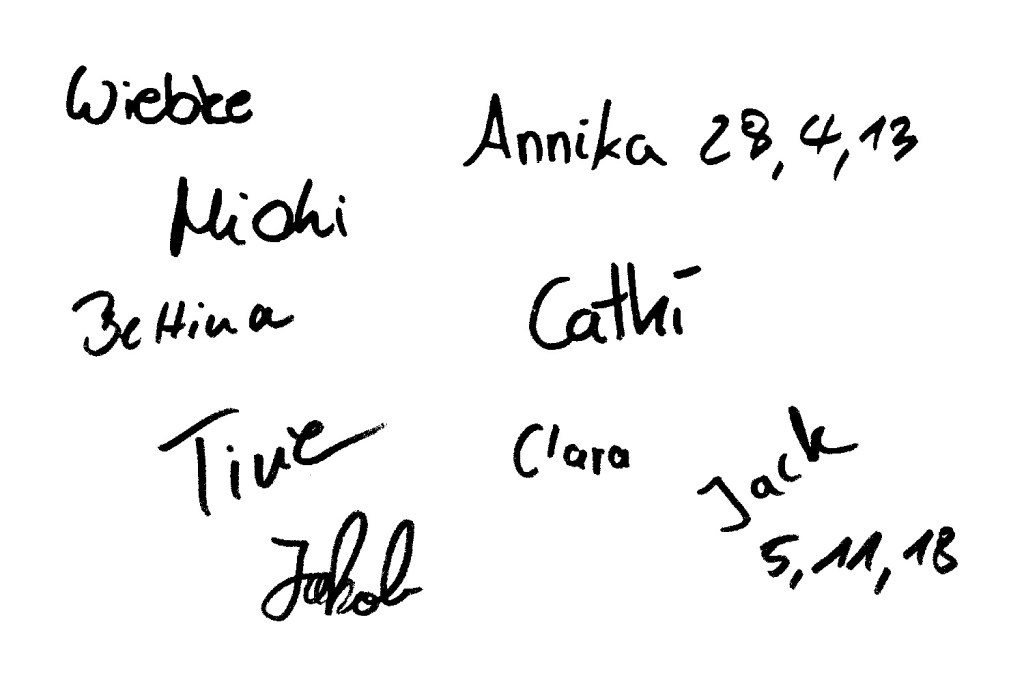 Wiebke
Annika 28, 4, 13
Michi
Bettina
Cathi
Tine
Clara
Jack
5, 11, 18
Jakob